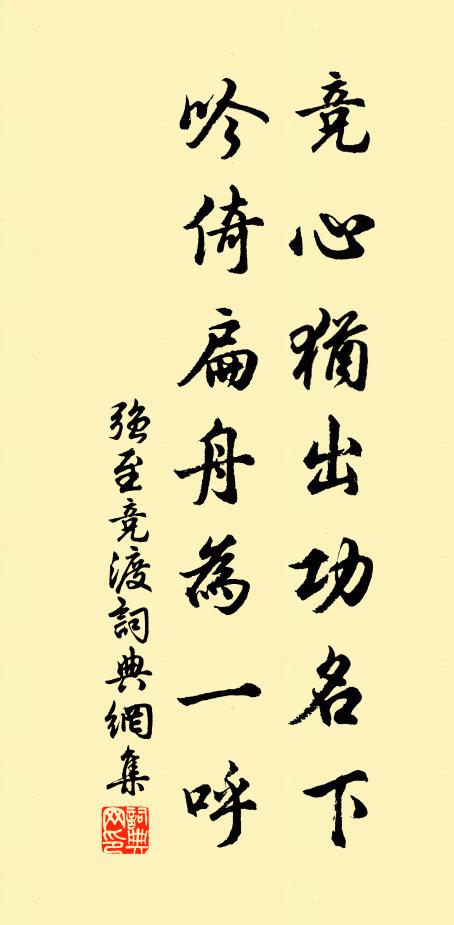 竞心猶出功名下
吟倚扁舟為一呼
強至竞渡詞典網集
詞典网印